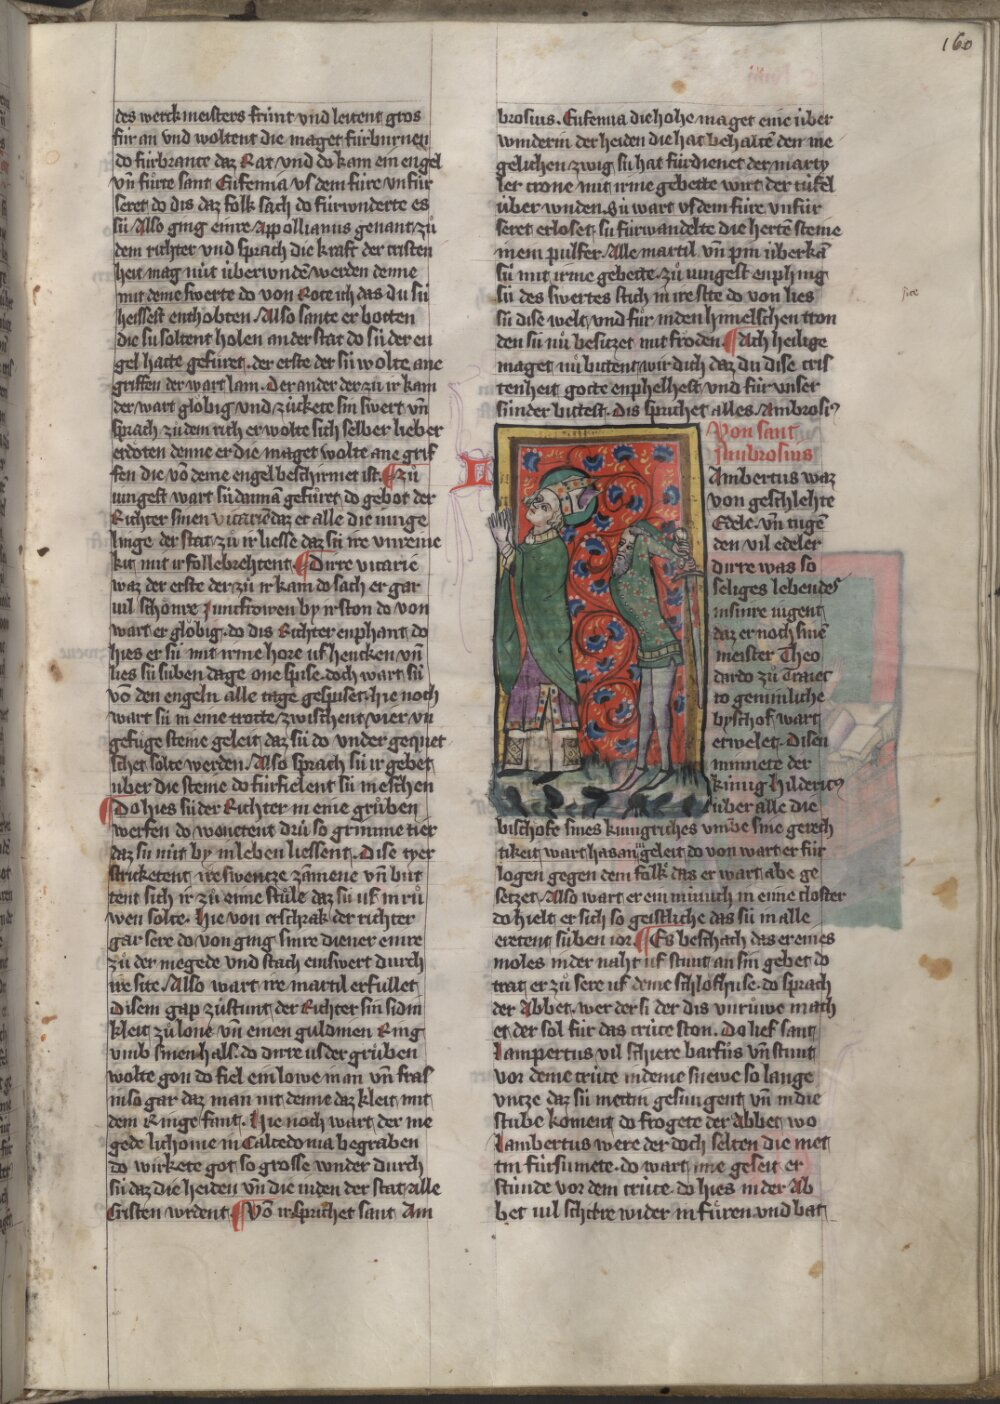 160
des werckmeisters frúnt vnd leitent gros
fúr an vnd woltent die maget fúrburnen
do fúrbrante daz Rat vnd do kam ein engel
vñ fůrte sant Eufemia vs dem fúre vnfúr
seret do dis daz folk sach do fúrwnderte es
sú Also ging einre Appollianus genant zů
dem richter vnd sprach die kraft der cristen
heit mag nút úberwndē werden denne
mit deme swerte do von Rote ich das du sú
heissest enthobten. Also sante er botten
die sú soltent holen an der stat do sú der en
gel hatte gefůret. der erste der sú wolte ane
griffen der wart lam. Der ander der zů ir kam
der wart glöbig vnd zuckete sin swert vñ
sprach zů dem rich er wolte sich selber lieber
erdöten denne er die maget wolte ane grif
fen die vō deme engel beschirmet ist. zů
iungest wart sú dannā gefůret do gebot der
Richter sinen vicariē daz er alle die iunge
linge der stat zů ir liesse daz sú ire vnreine
keit mit ir follebrechtent Dirre vicarie
waz der erste der zů ir kam do sach er gar
uil schönre Juncfrowen by ir ston do von
wart er glöbig. do dis Richter enphant do
hies er sú mit irme hore uf hencken vñ
lies sú súben dage one spise doch wart sú
vō den engeln alle tage gespiset. hie noch
wart sú in eine trotte zwischent vier vn
gefúge steine geleit daz sú do vnder gequet
schet solte werden. Also sprach sú ir gebet
úber die steine do fúrfielent sú in eschen
Do hies sú der Richter in eine grůben
werfen do wonetent drú so grimme tier
daz sú nút by in leben liessent. Dise tyer
stricketent ire swentze zamene vñ but
tent sich ir zů eime stůle daz sú uf in rů
wen solte. Hie von erschrak der richter
gar sere do von ging sinre diener einre
zů der megede vnd stach ein swert durch
ire site. Also wart ire martil erfullet
Disem gap zů stunt der Richter sin sidin
kleit zů lone vñ einen guldinen Ring
vmb sinen hals. do dirre us der grůben
wolte gon do fiel ein lowe in an vñ fras
in so gar daz man nit denne daz kleit mit
dem Ringe fant. Hie noch wart der me
gede lichome in Calcedonia begraben
do wirkete got so grosse wnder durch
sú daz die heiden vñ die iuden der stat alle
Cristen wrdent. Vō ir sprichet sant Am
brosius. Eufemia die hohe maget eine úber
winderin der heiden die hat behaltē den me
gelichen zwig sú hat fúrdienet der marty
ler crone mit irme gebette wirt der túfel
úber wnden. Sú wart vs dem fúre vnfúr
seret erloset. sú fúrwandelte die hertē steine
in ein pulfer. Alle martil vñ pin úberkā
sú mit irme gebette. zů iungest enphing
sú des swertes stich in ire sitte do von lies
site
sú dise welt vnd fůr in den himelschen tron
den sú nů besitzet mit fröden. Ach heilige
maget nů bittent wir dich daz du dise cris
tenheit gotte enphelhest vnd fúr vnser
súnder bittest. Dis sprichet alles Ambrosiꝰ
Von sant
Ambrosius
Ambertus waz
von geschlehte
Edele. vñ tugē
den vil edeler
dirre was so
seliges lebendes
in sinre iugent
daz er noch sinē
meister Theo
dardo zů Traiec
to gemmliche
byschof wart
erwelet. Disen
minnete der
kúnig Hildericꝰ
úber alle die
bischöfe sines kúnigriches vmbe sine gerech
tikeit wart has an in geleit do von wart er fúr
logen gegen dem folk das er wart abe ge
setzet. Also wart er ein múnich in eime closter
do hielt er sich so geistliche das sú in alle
eretent súben ior. Es beschach das er eines
moles in der naht uf stunt an sin gebet do
trat er zů sere uf deme schlofhuse. do sprach
der Abbet. wer der si der dis vnrůwe mach
et der sol fúr das crúce ston. Do lief sant
Lampertus vil schiere barfůs vñ stunt
vor deme crúce in deme snewe so lange
vntze daz sú mettin gesungent vñ in die
stube koment do frogete der Abbet wo
Lambertus were der doch selten die met
tin fúrsumete. do wart ime geseit er
stúnde vor dem crúce. do hies in der Ab
bet uil schiere wider in fůren vnd bat